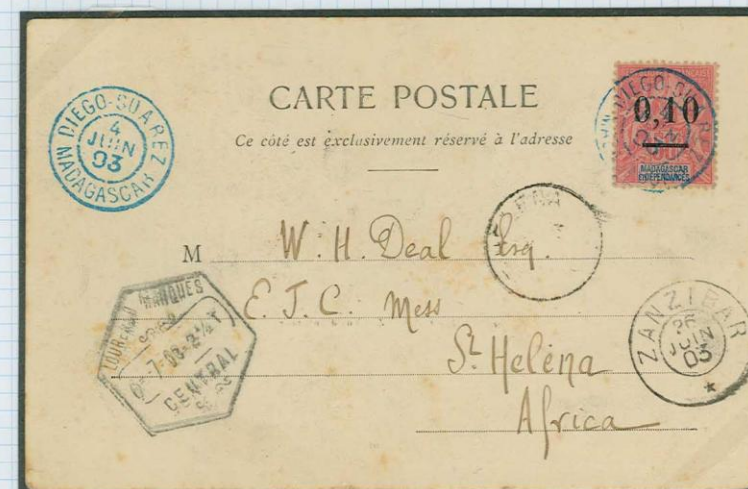 DIEGO-SUAREZ
4
JUIN
03
MADAGASCAR
CARTE POSTALE
Ce côté est exclusivement réservé à l'adresse
DIEGO-SUAR
0,10
MADAGASCAR
DÉPENDANCES
M W. H. Deal Esq.
E. T. C. Mess
St Helena
Africa
LOURENÇO MARQUES
7-03
CENTRAL
ZANZIBAR
26
JUIN
03